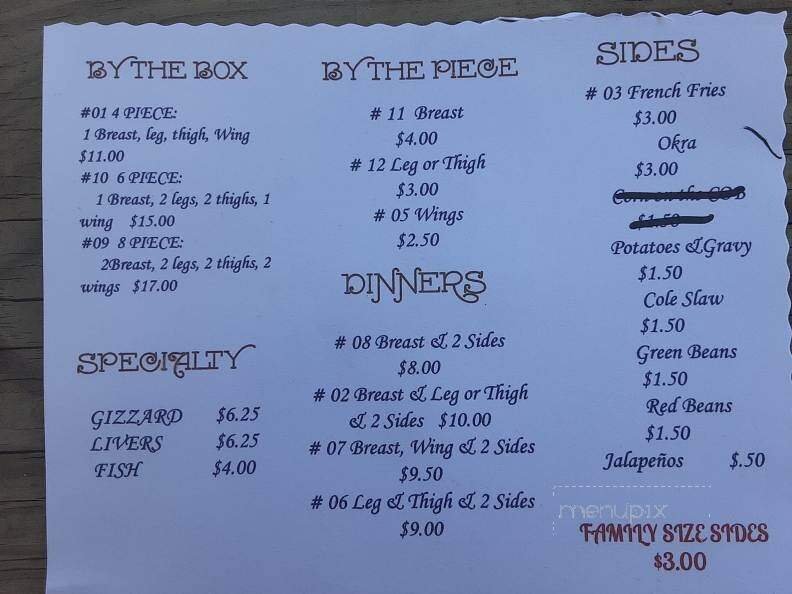 BY THE BOX
#01 4 PIECE:
1 Breast, leg, thigh, Wing
$11.00
#10 6 PIECE:
1 Breast, 2 legs, 2 thighs, 1
wing $15.00
#09 8 PIECE:
2Breast, 2 legs, 2 thighs, 2
wings $17.00
SPECIALTY
GIZZARD $6.25
LIVERS $6.25
FISH $4.00
BY THE PIECE
# 11 Breast
$4.00
# 12 Leg or Thigh
$3.00
# 05 Wings
$2.50
DINNERS
# 08 Breast & 2 Sides
$8.00
# 02 Breast & Leg or Thigh
& 2 Sides $10.00
# 07 Breast, Wing & 2 Sides
$9.50
# 06 Leg & Thigh & 2 Sides
$9.00
SIDES
# 03 French Fries
$3.00
Okra
$3.00
Corn on the COB
$1.50
Potatoes & Gravy
$1.50
Cole Slaw
$1.50
Green Beans
$1.50
Red Beans
$1.50
Jalapeños $.50
menupix
FAMILY SIZE SIDES
$3.00